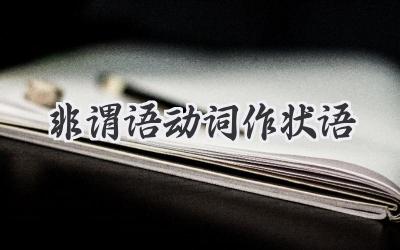 非谓语动词作状语